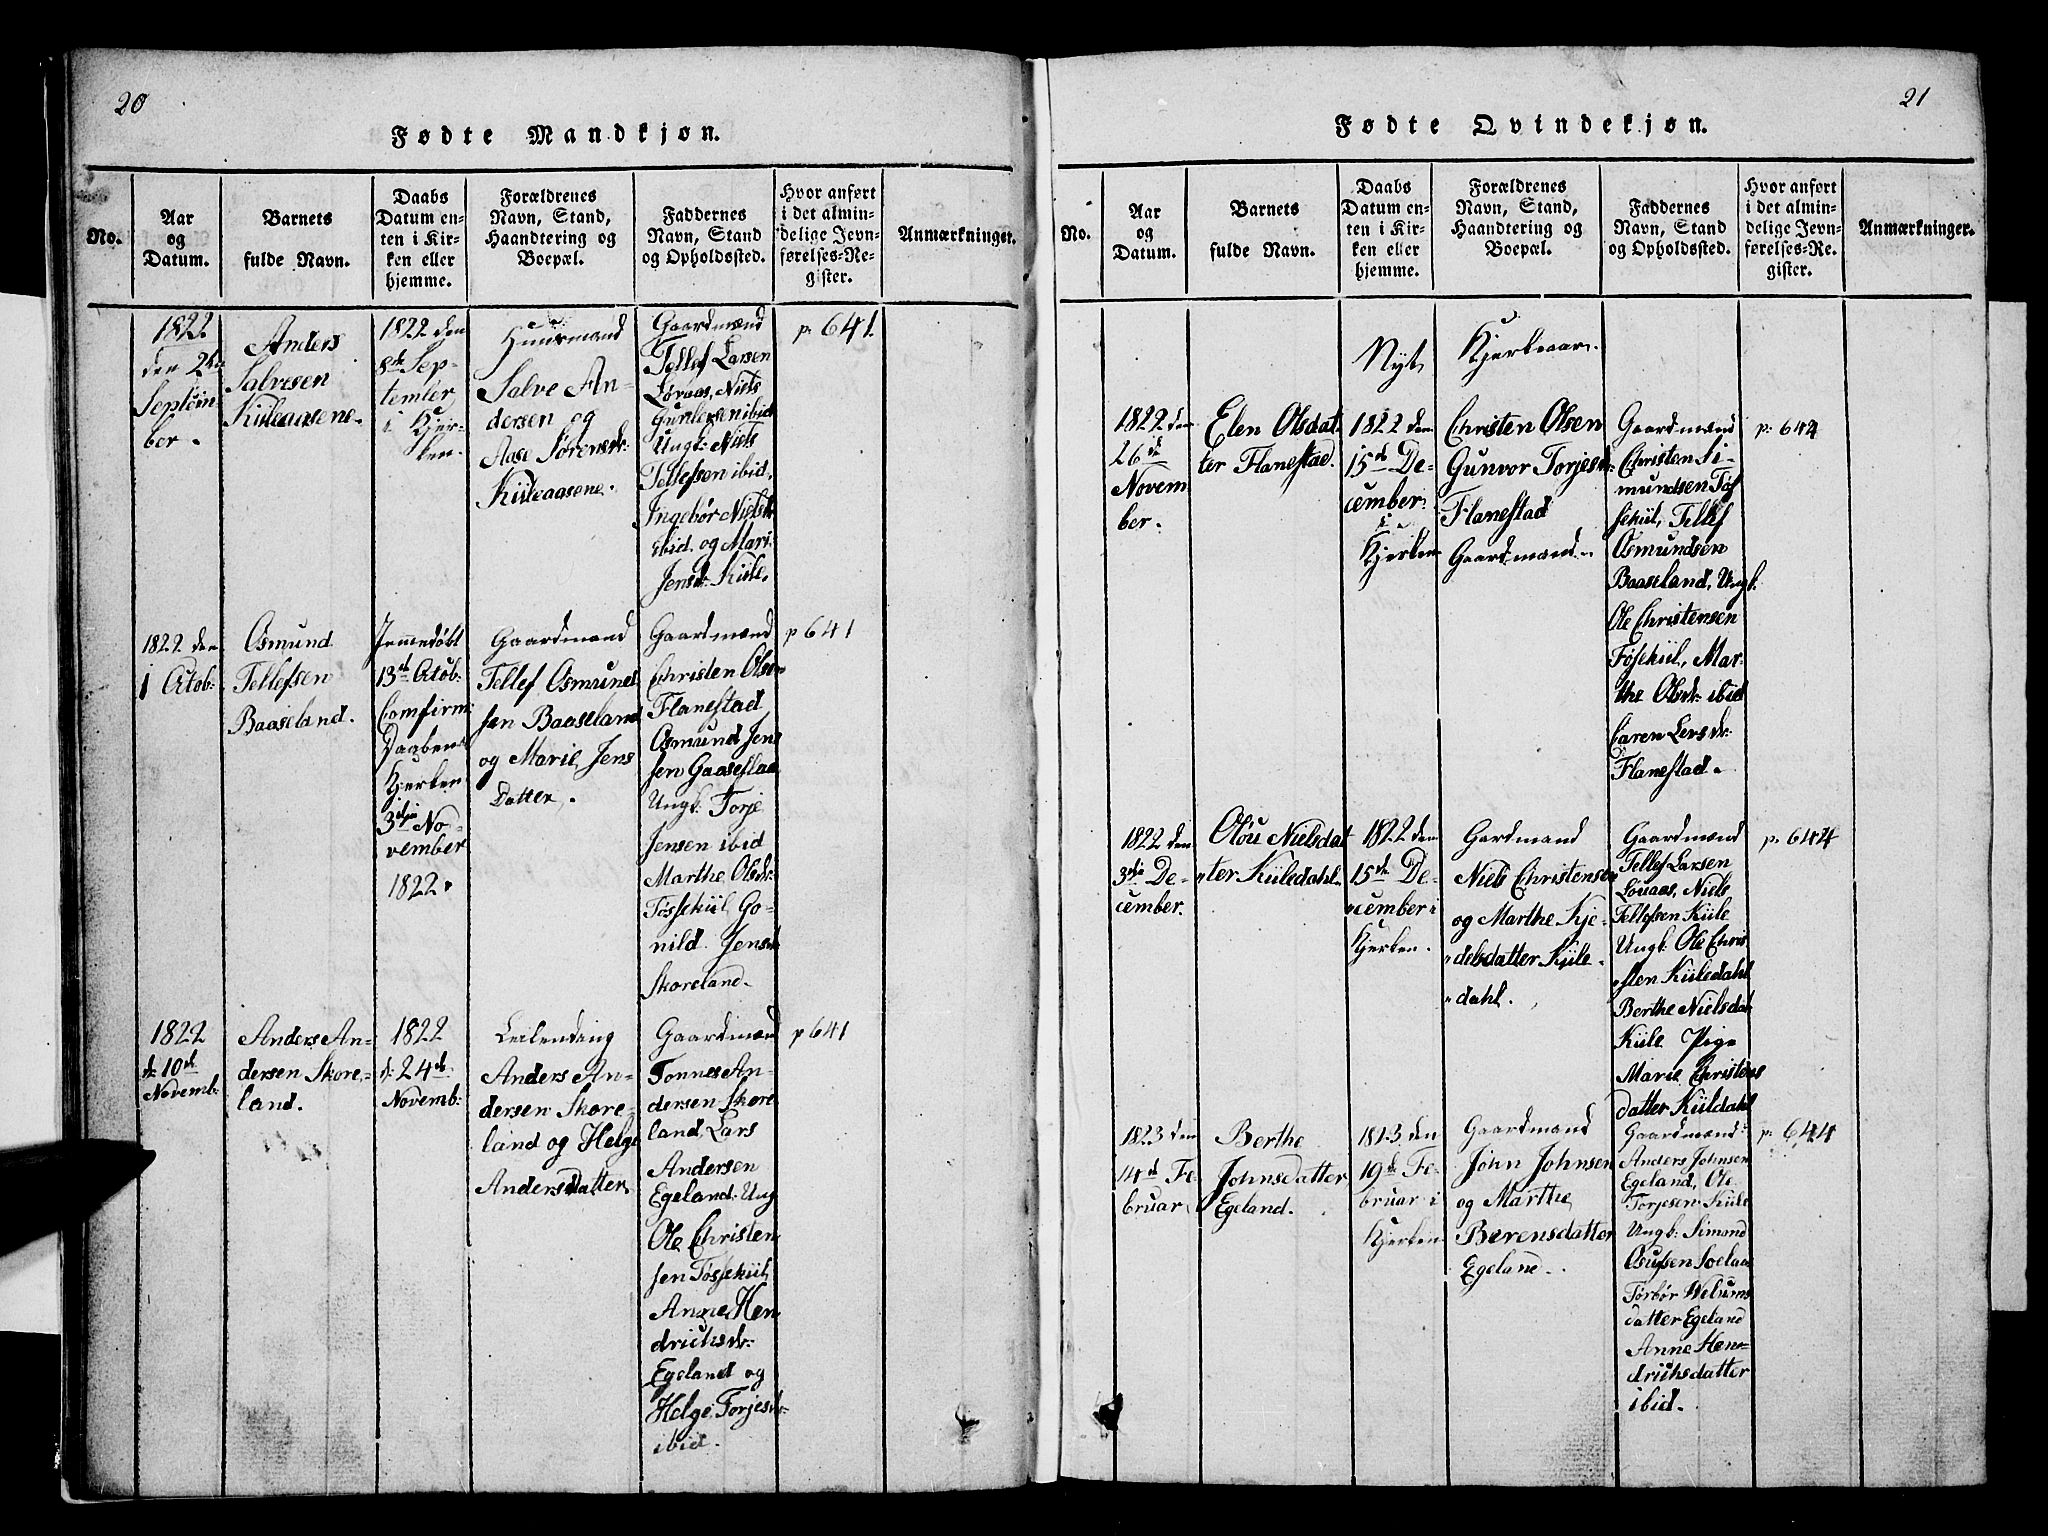 20
Fødte Mandkjøn.
No.
Aar
og
Datum.
Barnets
fulde Navn.
Daabs
Datum en-
ten i Kir-
ken eller
hjemme.
Forældrenes
Navn, Stand,
Haandtering og
Boepæl.
Faddernes
Navn, Stand
og Opholdssted.
Hvor anført
i det almin-
delige Jevn-
førelses-Re-
gister.
Anmærkninger.
1822
den 2den
Septem
ber.
Anders
Salvesen
Kiileaasene.
1822 den
8de Sep-
tember,
i Kjer-
ken.
Huusmand
Salve An-
dersen og
Aase Sørensdr.
Kiileaasene.
Gaardmænd
Tellef Larsen
Løvaas, Niels
Gunlefsen ibid
Ungk: Niels
Tellefsen ibid,
Ingebor Nielsdr
ibid. og Mari
Jensdr: Kiile,
p. 641.
1822 den
1 Octob:
Osmund
Tellefsen
Baaseland.
Jemmedøbt
13de Octob:
Comfirm:
Daaben i
Kjerken
3die No-
vember
1822.
Gaardmand
Tellef Osmund
sen Baaseland
og Marie Jens
Datter.
Gaardmænd
Christen Olsen
Flanestad,
Osmund Jen
sen Gaaseflaa
Ungk: Torje
Jensen ibid
Marthe Olsdr:
Føssekiil, Go-
nild Jensdr
Skoreland.
p 641
1822
d: 10de
Novemb:
Anders An-
dersen Skore-
land.
1822
d: 24de
Novemb:
Leilending
Anders An-
dersen Skore-
land og Helge
Andersdatter
Gaardmænd
Tonnes An-
dersen Skore
land, Lars
Andersen
Egeland, Ung
Ole Christen
sen Føssekiil,
Anne Hen
drichsdr:
Egeland og
Helge Torjesdr:
ibid.
p 641
21
Fødte Qvindekjøn.
No.
Aar
og
Datum.
Barnets
fulde Navn.
Daabs
Datum en-
ten i Kir-
ken eller
hjemme.
Forældrenes
Navn, Stand,
Haandtering og
Boepæl.
Faddernes
Navn, Stand
og Opholdssted.
Hvor anført
i det almin-
delige Jevn-
førelses-Re-
gister.
Anmærkninger.
Nyt Kjerkeaar.
1822 den
26de
Novem
ber.
Elen Olsdat
ter Flanestad.
1822 den
15de De-
cember
i
Kjerken
Christen Olsen
Gunvor Torjesdr
Flanestad
Gaardmænd.
Gaardmænd
Christen Si-
mundsen Føs
sekiil, Tellef
Osmundsen
Baaseland, Ungk:
Ole Christensen
Føssekiil, Mar-
the Olsdr: ibid
Caren Lersdr:
Flanestad.
p: 644
1822 den
3die De-
cember.
Olou Nielsdat
ter Kiiledahl.
1822 den
15de De-
cember i
Kjerken.
Gardmand
Niels Christensen
og Marthe Kje-
delsdatter Kiile-
dahl.
Gaardmænd
Tellef Larsen
Løvaas, Niels
Tellefsen Kiile
Ungk: Ole Chris
sten Kiiledahl
Berthe Nielsdat
Kiile Pige
Marie Christens
datter Kiildahl
p. 644
1823 den
14de Fe-
bruar
Berthe
Johnsdatter
Egeland.
1823 den
19de Fe-
bruar i
Kjerken
Gaardmand
John Johnsen
og Marthe
Berensdatter
Egeland.
Gaardmænd:
Anders Johnsen
Egeland, Ole
Torjesen Kiile
Ungk: Simond
Osufsen Soelaa
Torbor Welums
datter Egeland
Anne Hen-
drichsdatter
ibid.
p: 644